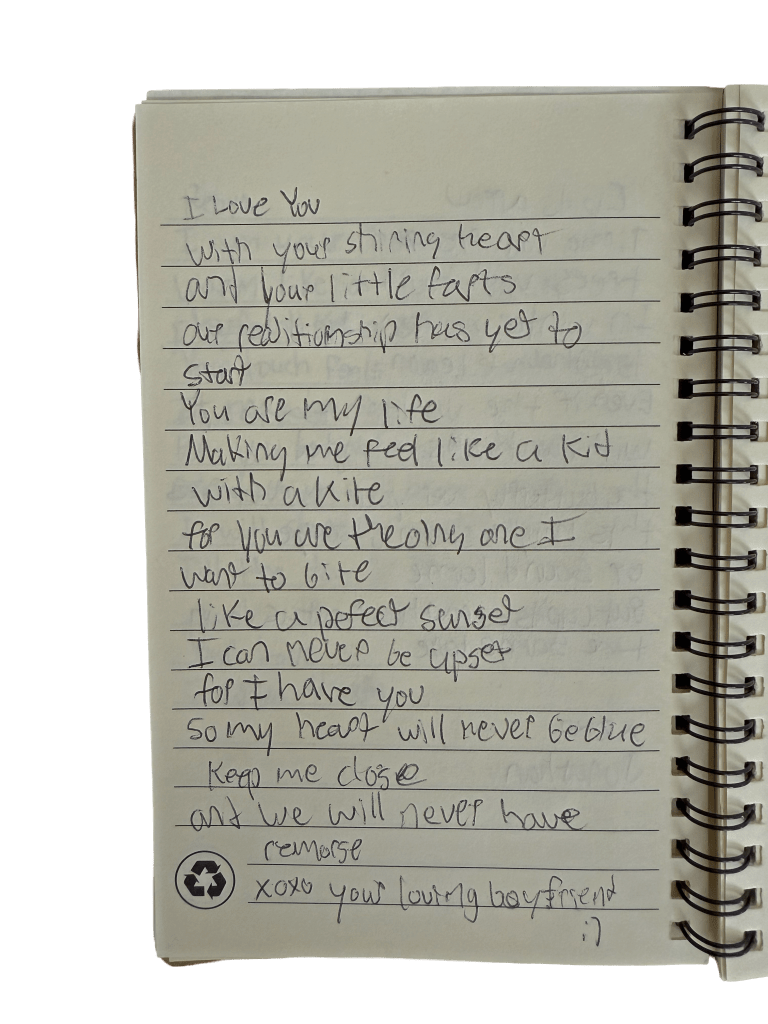 I Love You
with your shining heart
and your little farts
our realitionship has yet to
start
You are my life
Making me feel like a kid
with a kite
for you are the olny one I
want to bite
like a pefect sunset
I can never be upset
for I have you
So my heart will never be blue
Keep me close
and we will never have
remorse
xoxo your loving boyfriend
:)